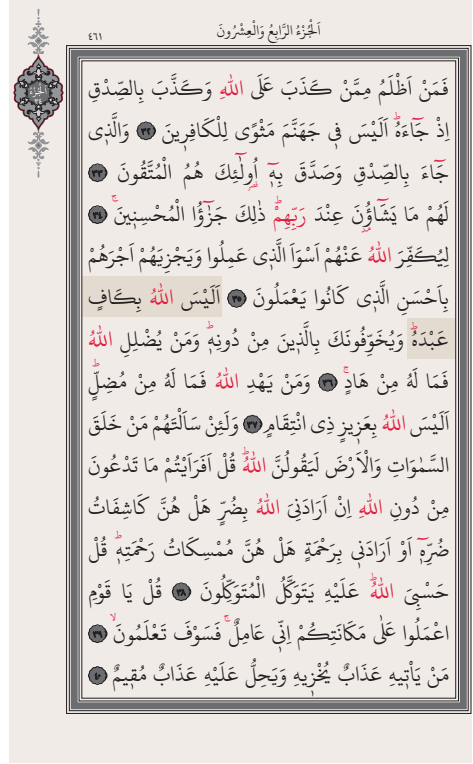 اَلْجُزْءُ الرَّابِعُ وَالْعِشْرُونَ
٤٦١
اَلْجُزْءُ
٢٤
فَمَنْ اَظْلَمُ مِمَّنْ كَذَبَ عَلَى اللّٰهِ وَكَذَّبَ بِالصِّدْقِ
اِذْ جَٓاءَهُۜ اَلَيْسَ ف۪ي جَهَنَّمَ مَثْوًى لِلْكَافِر۪ينَ ﴿٣٢﴾ وَالَّذ۪ي
جَٓاءَ بِالصِّدْقِ وَصَدَّقَ بِه۪ٓ اُو۬لٰٓئِكَ هُمُ الْمُتَّقُونَ ﴿٣٣﴾
لَهُمْ مَا يَشَٓاؤُ۫نَ عِنْدَ رَبِّهِمْۜ ذٰلِكَ جَزٰٓؤُا الْمُحْسِن۪ينَۚ ﴿٣٤﴾
لِيُكَفِّرَ اللّٰهُ عَنْهُمْ اَسْوَاَ الَّذ۪ي عَمِلُوا وَيَجْزِيَهُمْ اَجْرَهُمْ
بِاَحْسَنِ الَّذ۪ي كَانُوا يَعْمَلُونَ ﴿٣٥﴾ اَلَيْسَ اللّٰهُ بِكَافٍ
عَبْدَهُۜ وَيُخَوِّفُونَكَ بِالَّذ۪ينَ مِنْ دُونِه۪ۜ وَمَنْ يُضْلِلِ اللّٰهُ
فَمَا لَهُ مِنْ هَادٍۚ ﴿٣٦﴾ وَمَنْ يَهْدِ اللّٰهُ فَمَا لَهُ مِنْ مُضِلٍّۜ
اَلَيْسَ اللّٰهُ بِعَز۪يزٍ ذِي انْتِقَامٍ ﴿٣٧﴾ وَلَئِنْ سَاَلْتَهُمْ مَنْ خَلَقَ
السَّمٰوَاتِ وَالْاَرْضَ لَيَقُولُنَّ اللّٰهُۜ قُلْ اَفَرَاَيْتُمْ مَا تَدْعُونَ
مِنْ دُونِ اللّٰهِ اِنْ اَرَادَنِيَ اللّٰهُ بِضُرٍّ هَلْ هُنَّ كَاشِفَاتُ
ضُرِّه۪ٓ اَوْ اَرَادَن۪ي بِرَحْمَةٍ هَلْ هُنَّ مُمْسِكَاتُ رَحْمَتِه۪ۜ قُلْ
حَسْبِيَ اللّٰهُۜ عَلَيْهِ يَتَوَكَّلُ الْمُتَوَكِّلُونَ ﴿٣٨﴾ قُلْ يَا قَوْمِ
اعْمَلُوا عَلٰى مَكَانَتِكُمْ اِنّ۪ي عَامِلٌۚ فَسَوْفَ تَعْلَمُونَۙ ﴿٣٩﴾
مَنْ يَاْت۪يهِ عَذَابٌ يُخْز۪يهِ وَيَحِلُّ عَلَيْهِ عَذَابٌ مُق۪يمٌ ﴿٤٠﴾